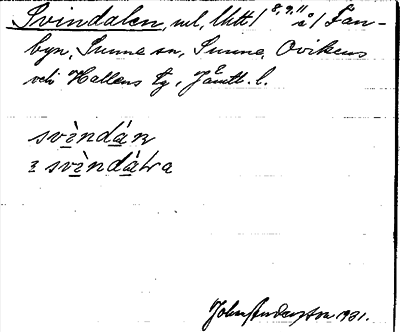 Svindalen, ml, Utt/8,9,11 å/ Fån-
byn, Sunne sn, Sunne, Ovikens
och Hallens tg, Jämtl. l.
svìndán
i svìndátra
John Anderson 1931.